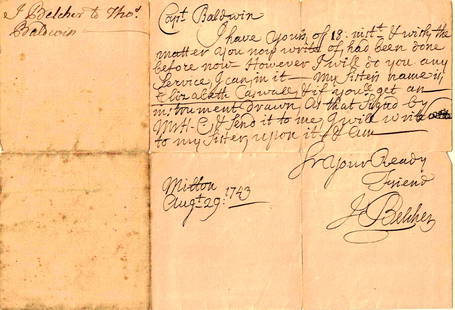 J Belcher to Tho.s
Baldwin
Capt Baldwin
I have Yours of 18. inst. & wish the
matter You now write of has been done
before now However I will do you any
Service I can in it — My Sisters name is
Elizabeth Caswall, & if you'll get an
instrument Drawn, As that Signd by
Mr H-C & Send it to me, I will write
to my Sister upon it, & am
Sr Your Ready
Friend
J Belcher
Milton
Augt 29: 1743